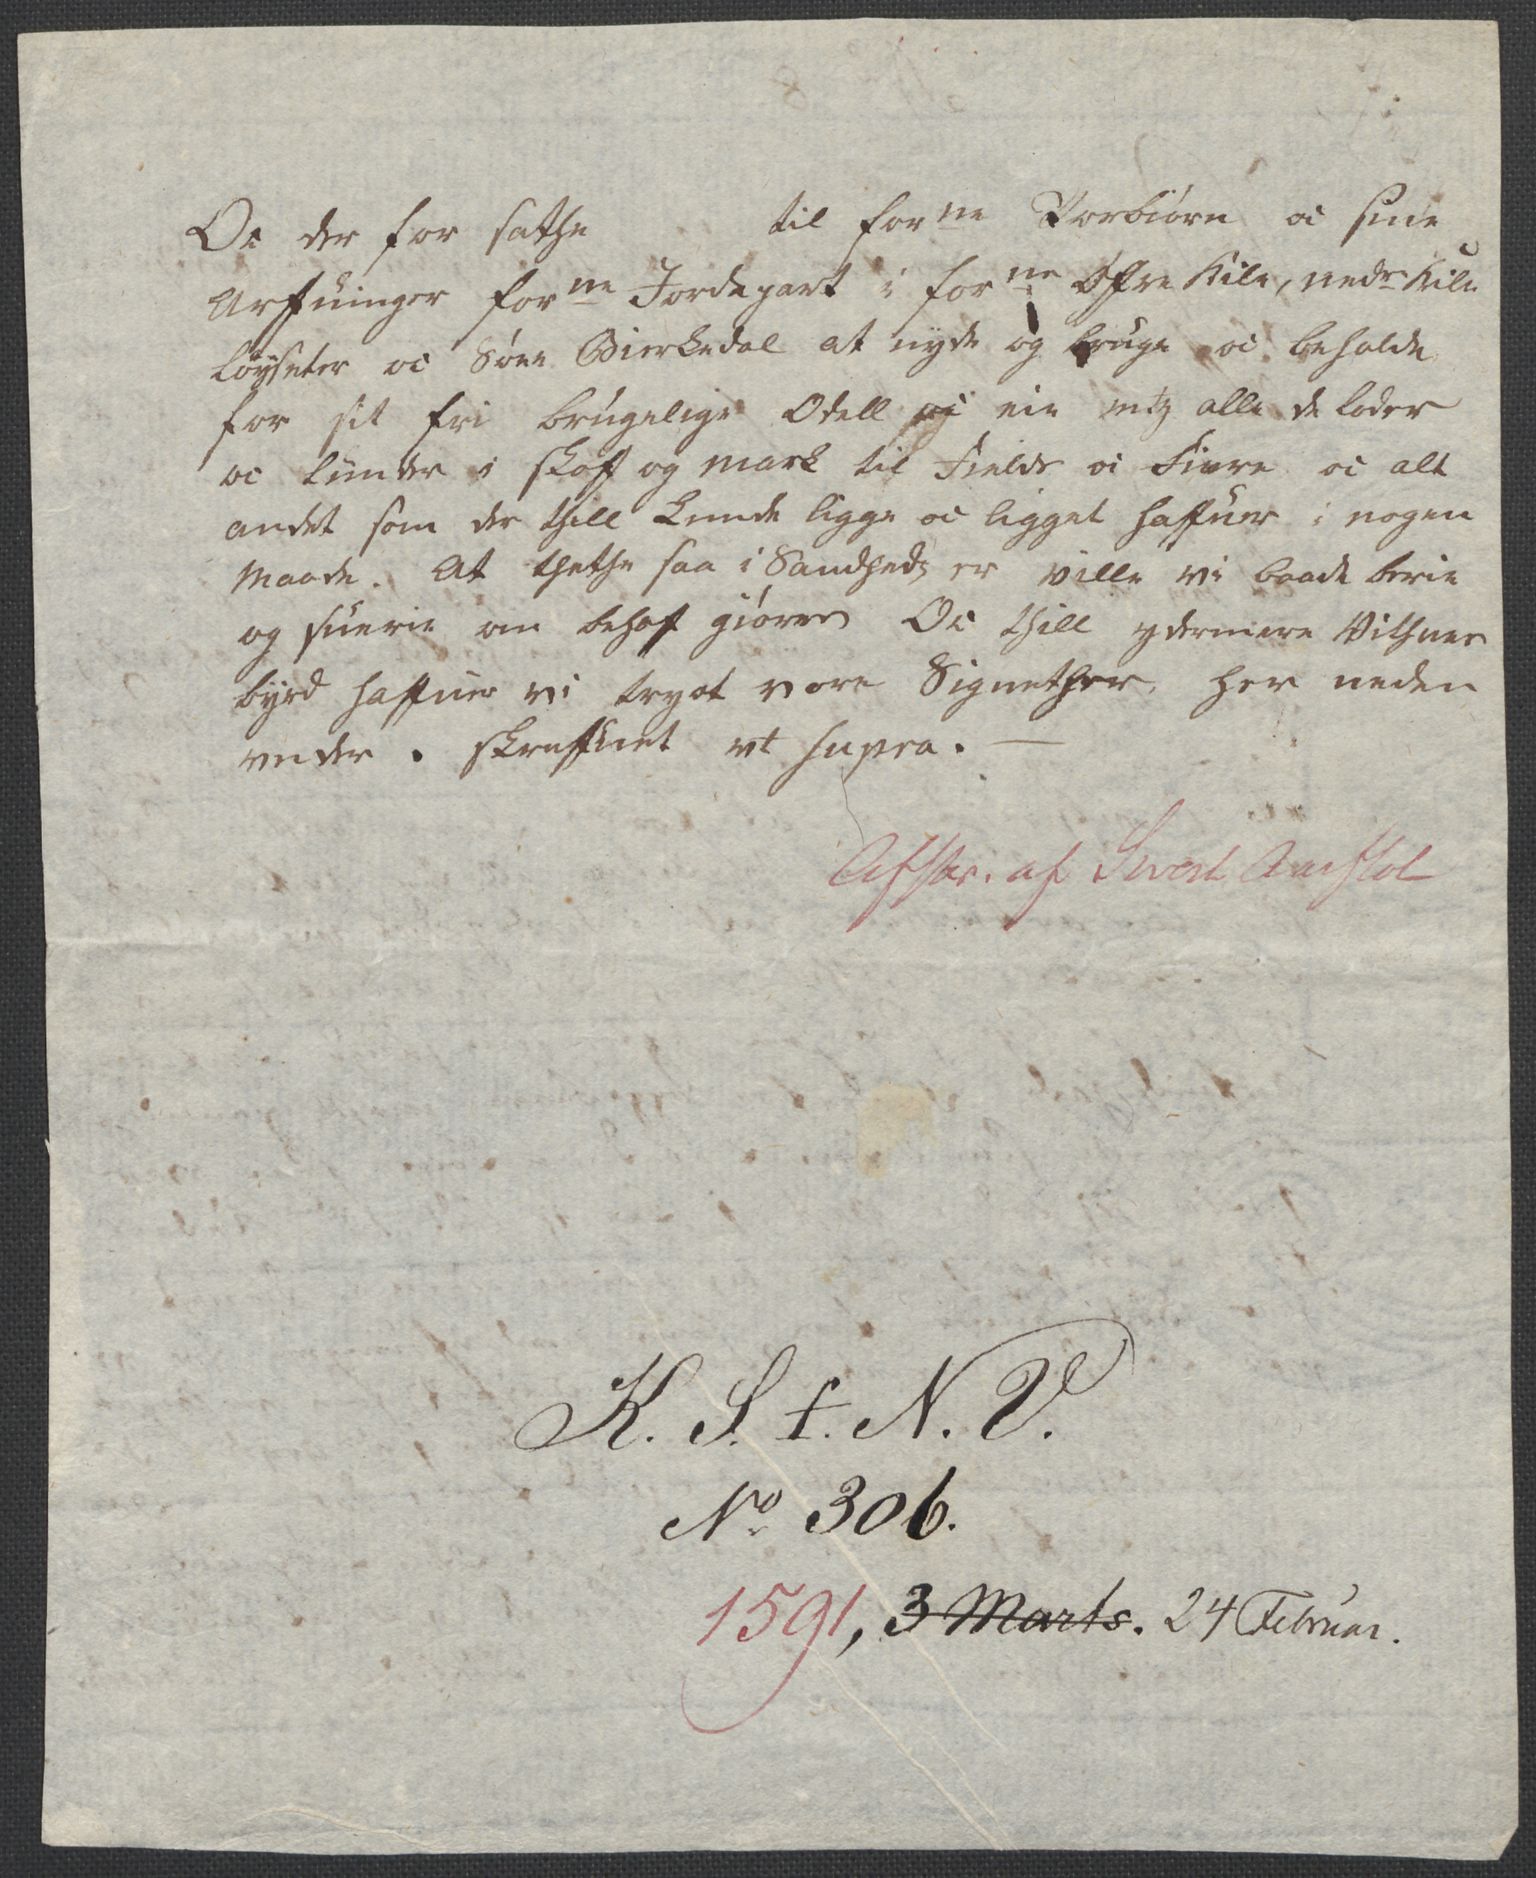 Oc der for sathe til for ne Torbiørn oc sine
Arffuinger for ne Jordepart i for ne Øfre Kile, nedr Kile
Løyseter oc Søre Bierkedal at nyde og bruge oc beholde
for sit fri brugelige Odell oc eie mtz alle de loder
oc lunder i skoff og mark til Field oc Fiere oc alt
andet som der thill kunde ligge oc ligget haffuer i nogen
Maade. At thethe saa i Sandhedz er ville vi baade berie
og suerie om behof giøres Oc thill ydermere Vithnes
byrd haffuer vi trygt vore Signether her neden
vnder. skreffuet vt supra. —
Afskr. af Sivert Aarflot
K. S. f. N. V.
No 306.
1591, 3 Marts. 24 Februar.